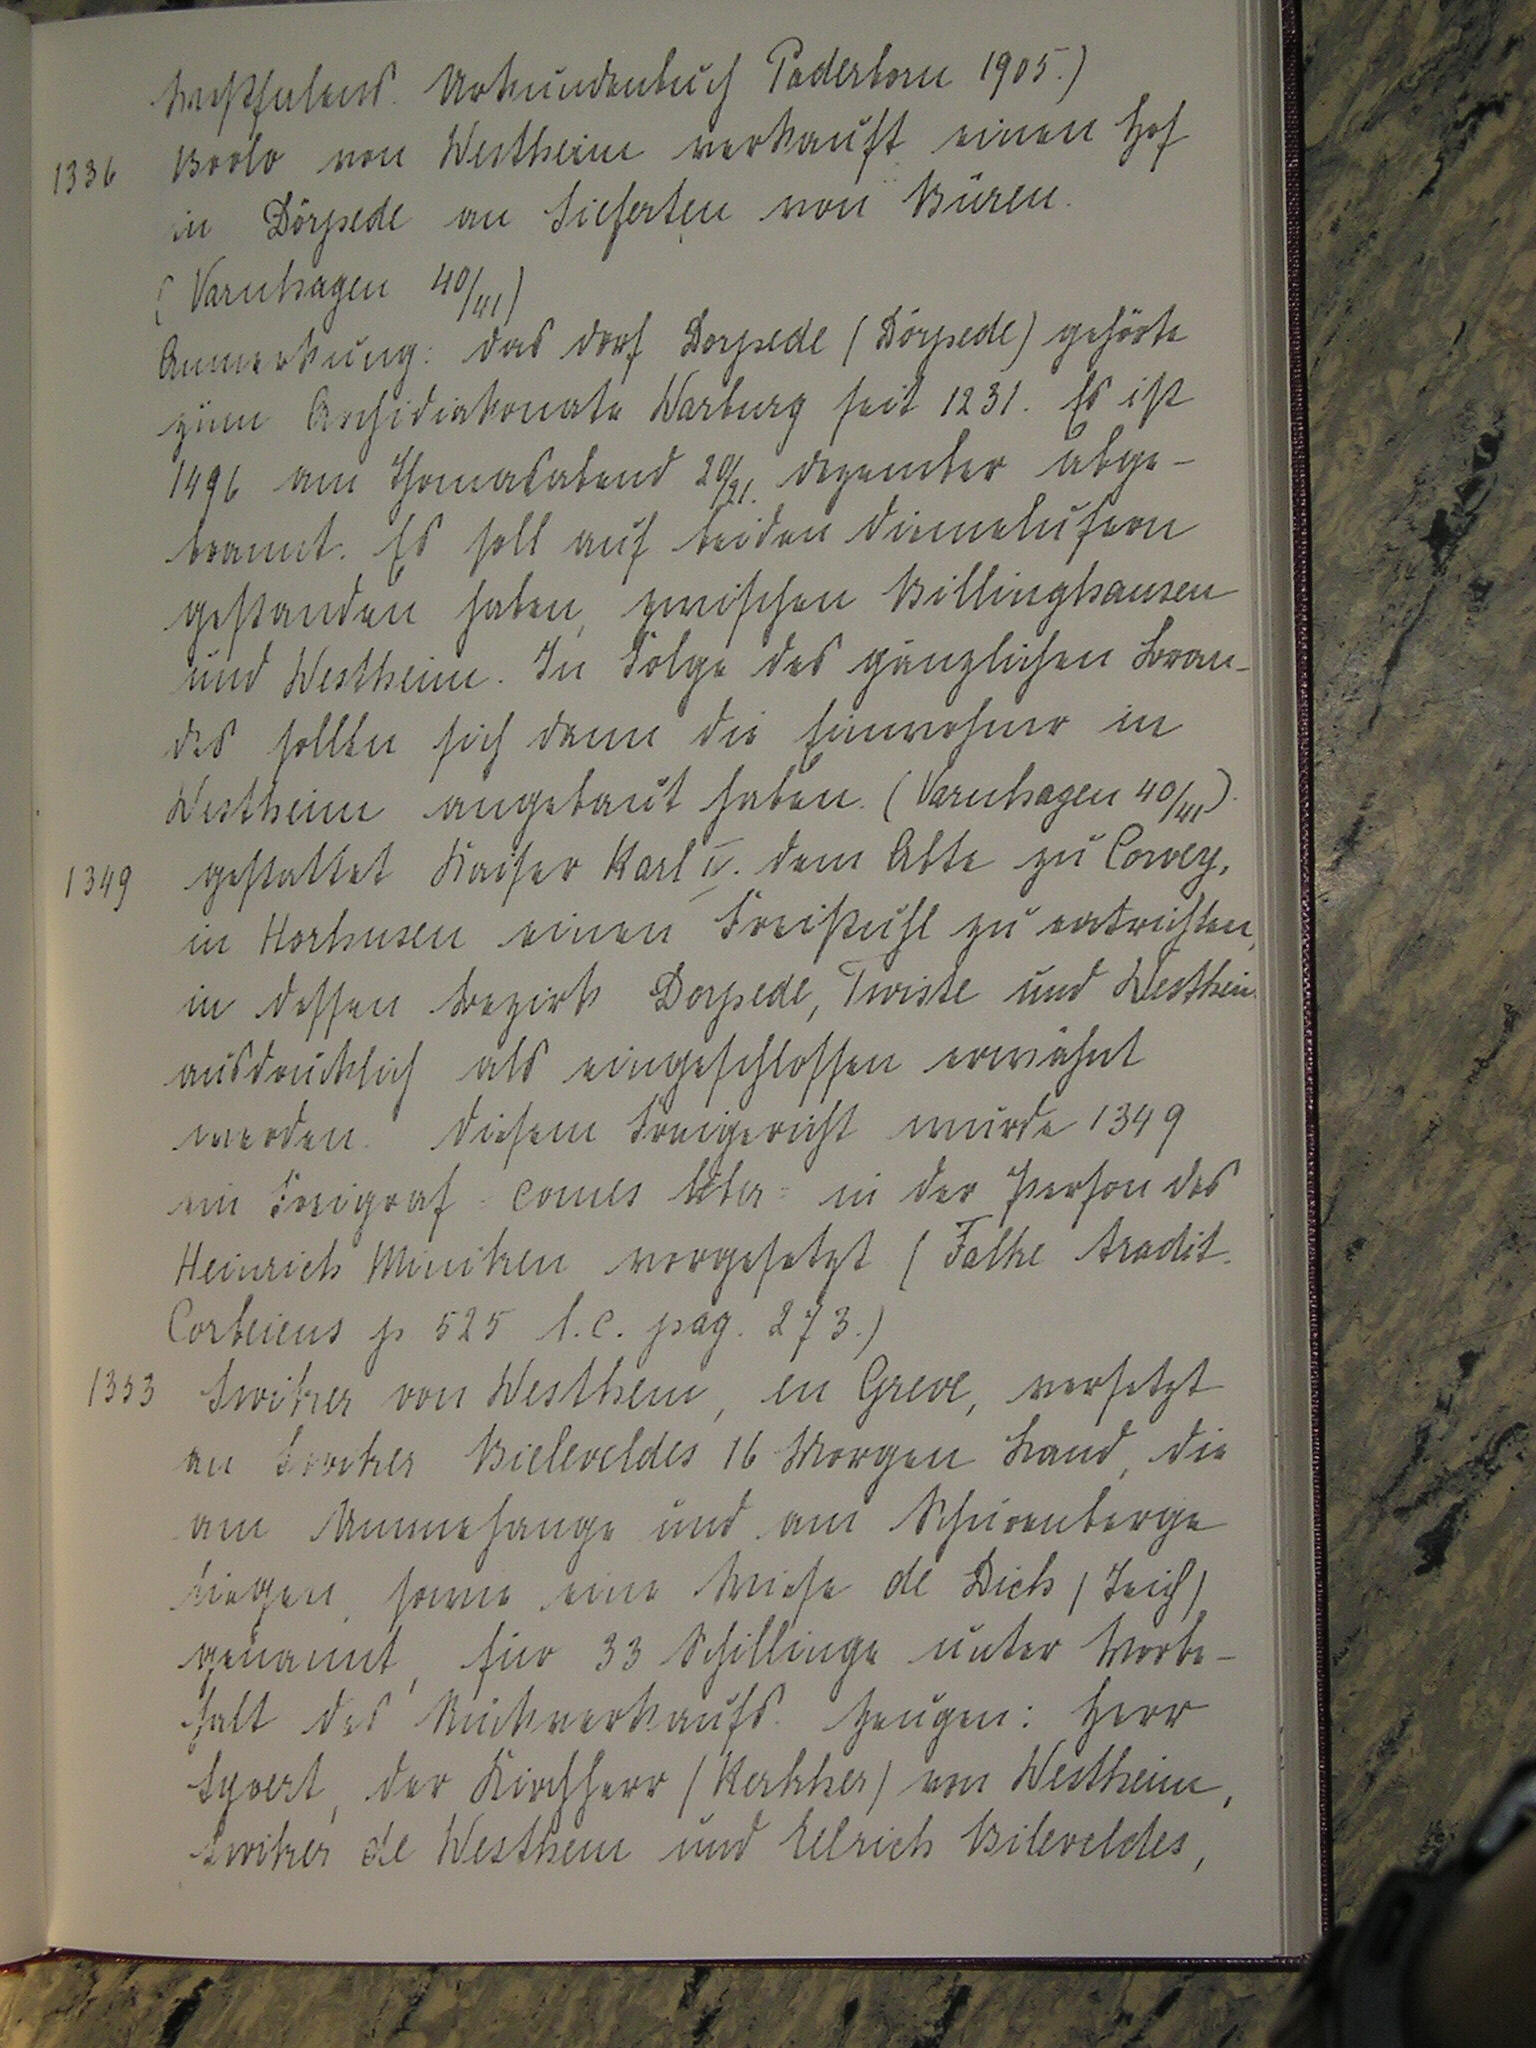 Westfalens. Urkundenbuch Paderborn 1905.)
1336 von Westheim verkauft einen Hof
in Dörpede an von Büren.
(Varnhagen 40/41)
Anmerkung: das Dorf Dorpede (Dörpede) gehörte
zum Archidiakonate Warburg seit 1231. Es ist
1496 am Thomasabend 20/21. Dezember abge-
brannt. Es soll auf beiden Diemelufern
gestanden haben, zwischen Billinghausen
und Westheim. In Folge des gänzlichen Bran-
des sollen sich dann die Einwohner in
Westheim angebaut haben. (Varnhagen 40/41).
1349 gestattet Kaiser Karl IV. dem Abte zu Corvey,
in Horhusen einen Freistuhl zu entrichten,
in dessen Bezirk Dorpede, Twiste und Westheim
ausdrücklich als eingeschlossen erwähnt
werden. Diesem Freigericht wurde 1349
ein Freigraf = comes liber = in der Person des
Heinrich Miniken vorgesetzt (Falke tradit.
Corbeiens p 525 l.c. pag. 273.)
1353 Swiker von Westhem, en Greve, versetzt
an Swiker Bieleveldes 16 Morgen Land, die
am Ummehange und am Schürenberge
liegen, sowie eine Wiese de Dich (Teich)
genannt, für 33 Schillinge unter Vorbe-
halt des Rückverkaufs. Zeugen: Herr
Syvert, der Kirchherr (Kerkher) von Westheim,
Swiker de Westhem und Elrich Bileveldes,